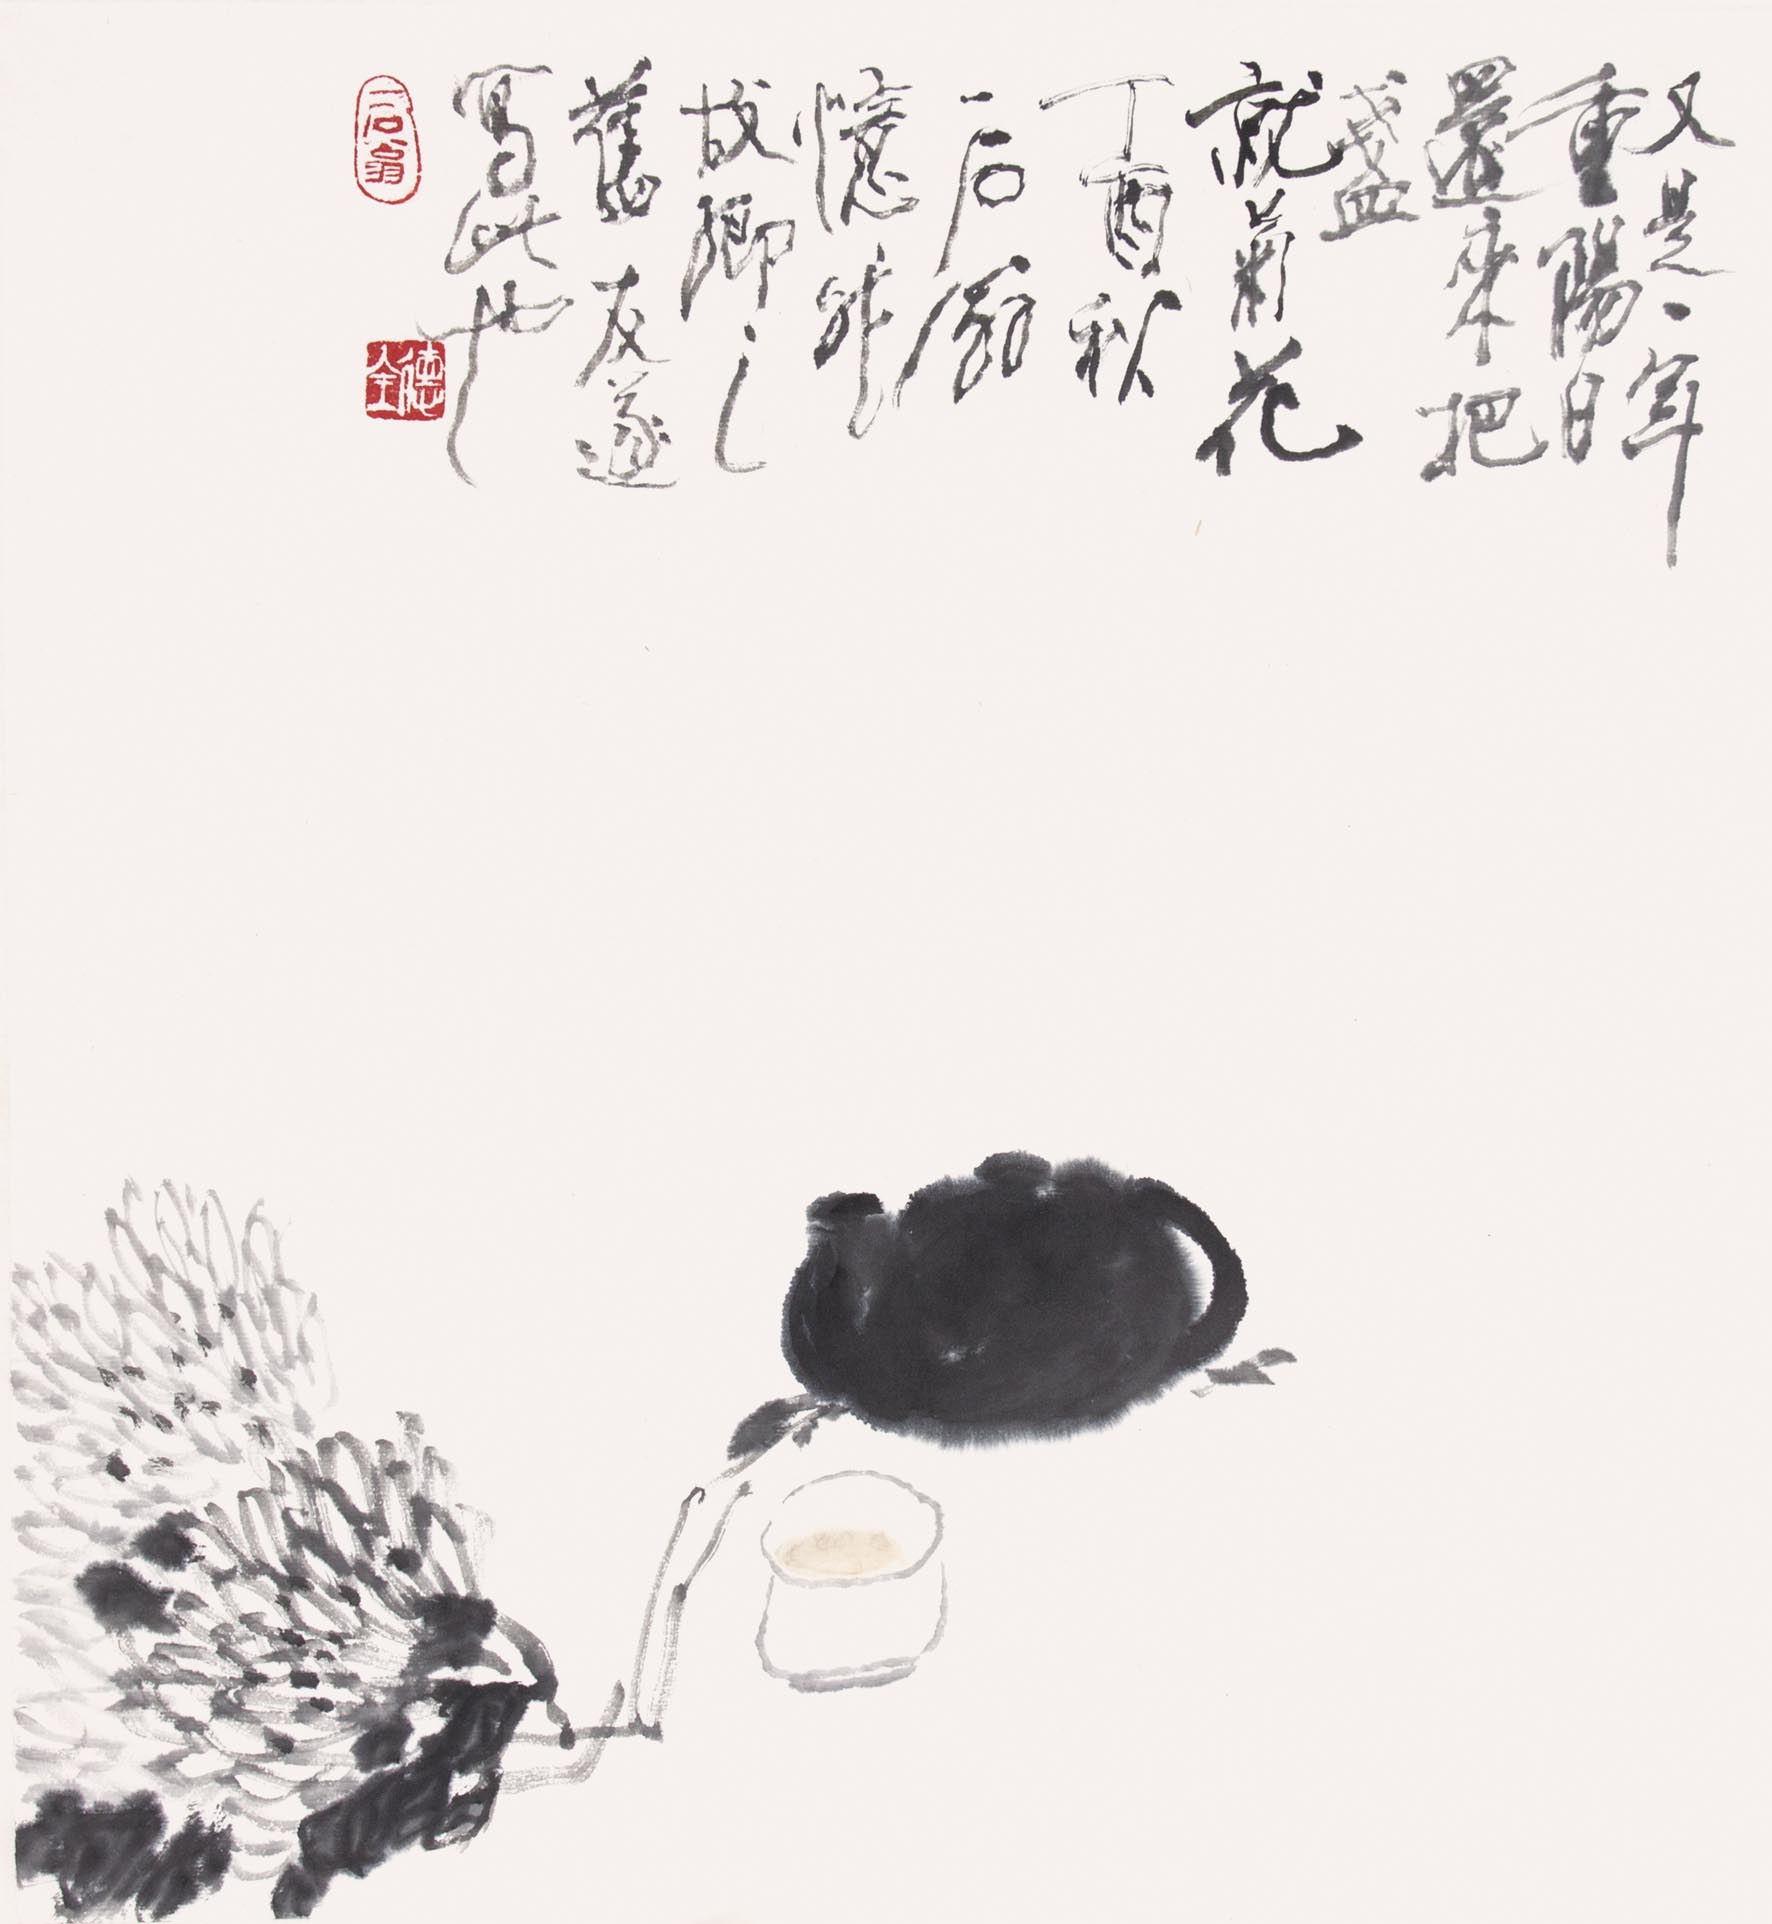 又是一年
重陽日
還來把
盞
就菊花
丁酉秋
一石翁
憶
故鄉之
舊友遂
寫此也
一石翁
德全